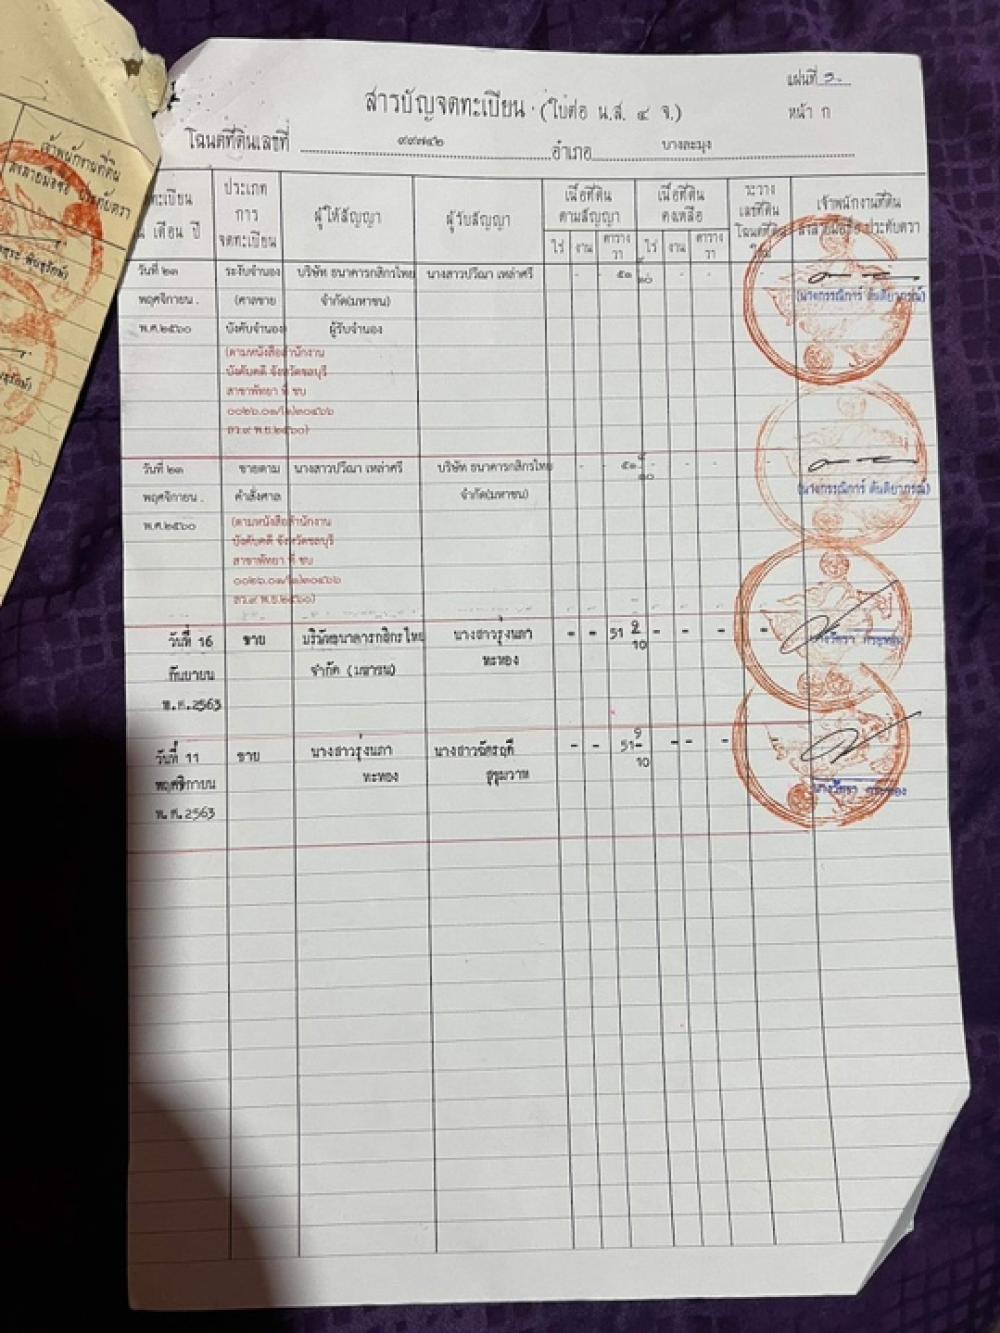 แผ่นที่ ๖
สารบัญจดทะเบียน (ใบต่อ น.ส. ๔ จ.)
หน้า ก
โฉนดที่ดินเลขที่ ๙๙๗๔๒ อำเภอ บางละมุง
เจ้าพนักงานที่ดิน
ทะเบียน
เดือน ปี
ประเภท
การ
จดทะเบียน
ผู้ให้สัญญา
ผู้รับสัญญา
เนื้อที่ดิน
ตามสัญญา
ไร่ งาน ตาราง
วา
เนื้อที่ดิน
คงเหลือ
ไร่ งาน ตาราง
วา
ระวาง
เลขที่ดิน
โฉนดที่ดิน
เจ้าพนักงานที่ดิน
ลงลายมือชื่อ ประทับตรา
วันที่ ๒๓ ระงับจำนอง บริษัท ธนาคารกสิกรไทย นางสาวปวีณา เหล่าศรี - - ๕๑ - - -
พฤศจิกายน (ศาลขาย จำกัด(มหาชน) (นางกรรณิการ์ ตันติยาภรณ์)
พ.ศ.๒๕๖๐ บังคับจำนอง ผู้รับจำนอง
(ตามหนังสือสำนักงาน
บังคับคดี จังหวัดชลบุรี
สาขาพัทยา ที่ ชบ
ลว.๙ พ.ย.๒๕๖๐)
วันที่ ๒๓ ขายตาม นางสาวปวีณา เหล่าศรี บริษัท ธนาคารกสิกรไทย - - ๕๑ - - -
พฤศจิกายน คำสั่งศาล จำกัด(มหาชน) (นางกรรณิการ์ ตันติยาภรณ์)
พ.ศ.๒๕๖๐ (ตามหนังสือสำนักงาน
บังคับคดี จังหวัดชลบุรี
สาขาพัทยา ที่ ชบ
ลว.๙ พ.ย.๒๕๖๐)
วันที่ 16 ขาย บริษัทธนาคารกสิกรไทย นางสาวรุ่งนภา - - 51 - - - -
กันยายน จำกัด (มหาชน) ทะทอง 10
พ.ศ.2563
วันที่ 11 ขาย นางสาวรุ่งนภา นางสาวฉัตรฤดี - - 51 9 - - -
พฤศจิกายน ทะทอง สุขุมวาท 10
พ.ศ.2563